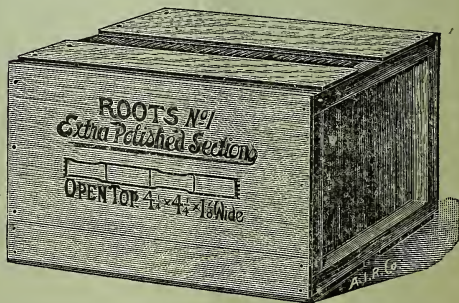 ROOTS No 1
Extra Polished Sections
OPEN TOP 4¼×4¼×1⅞ Wide
A.I.R.Co